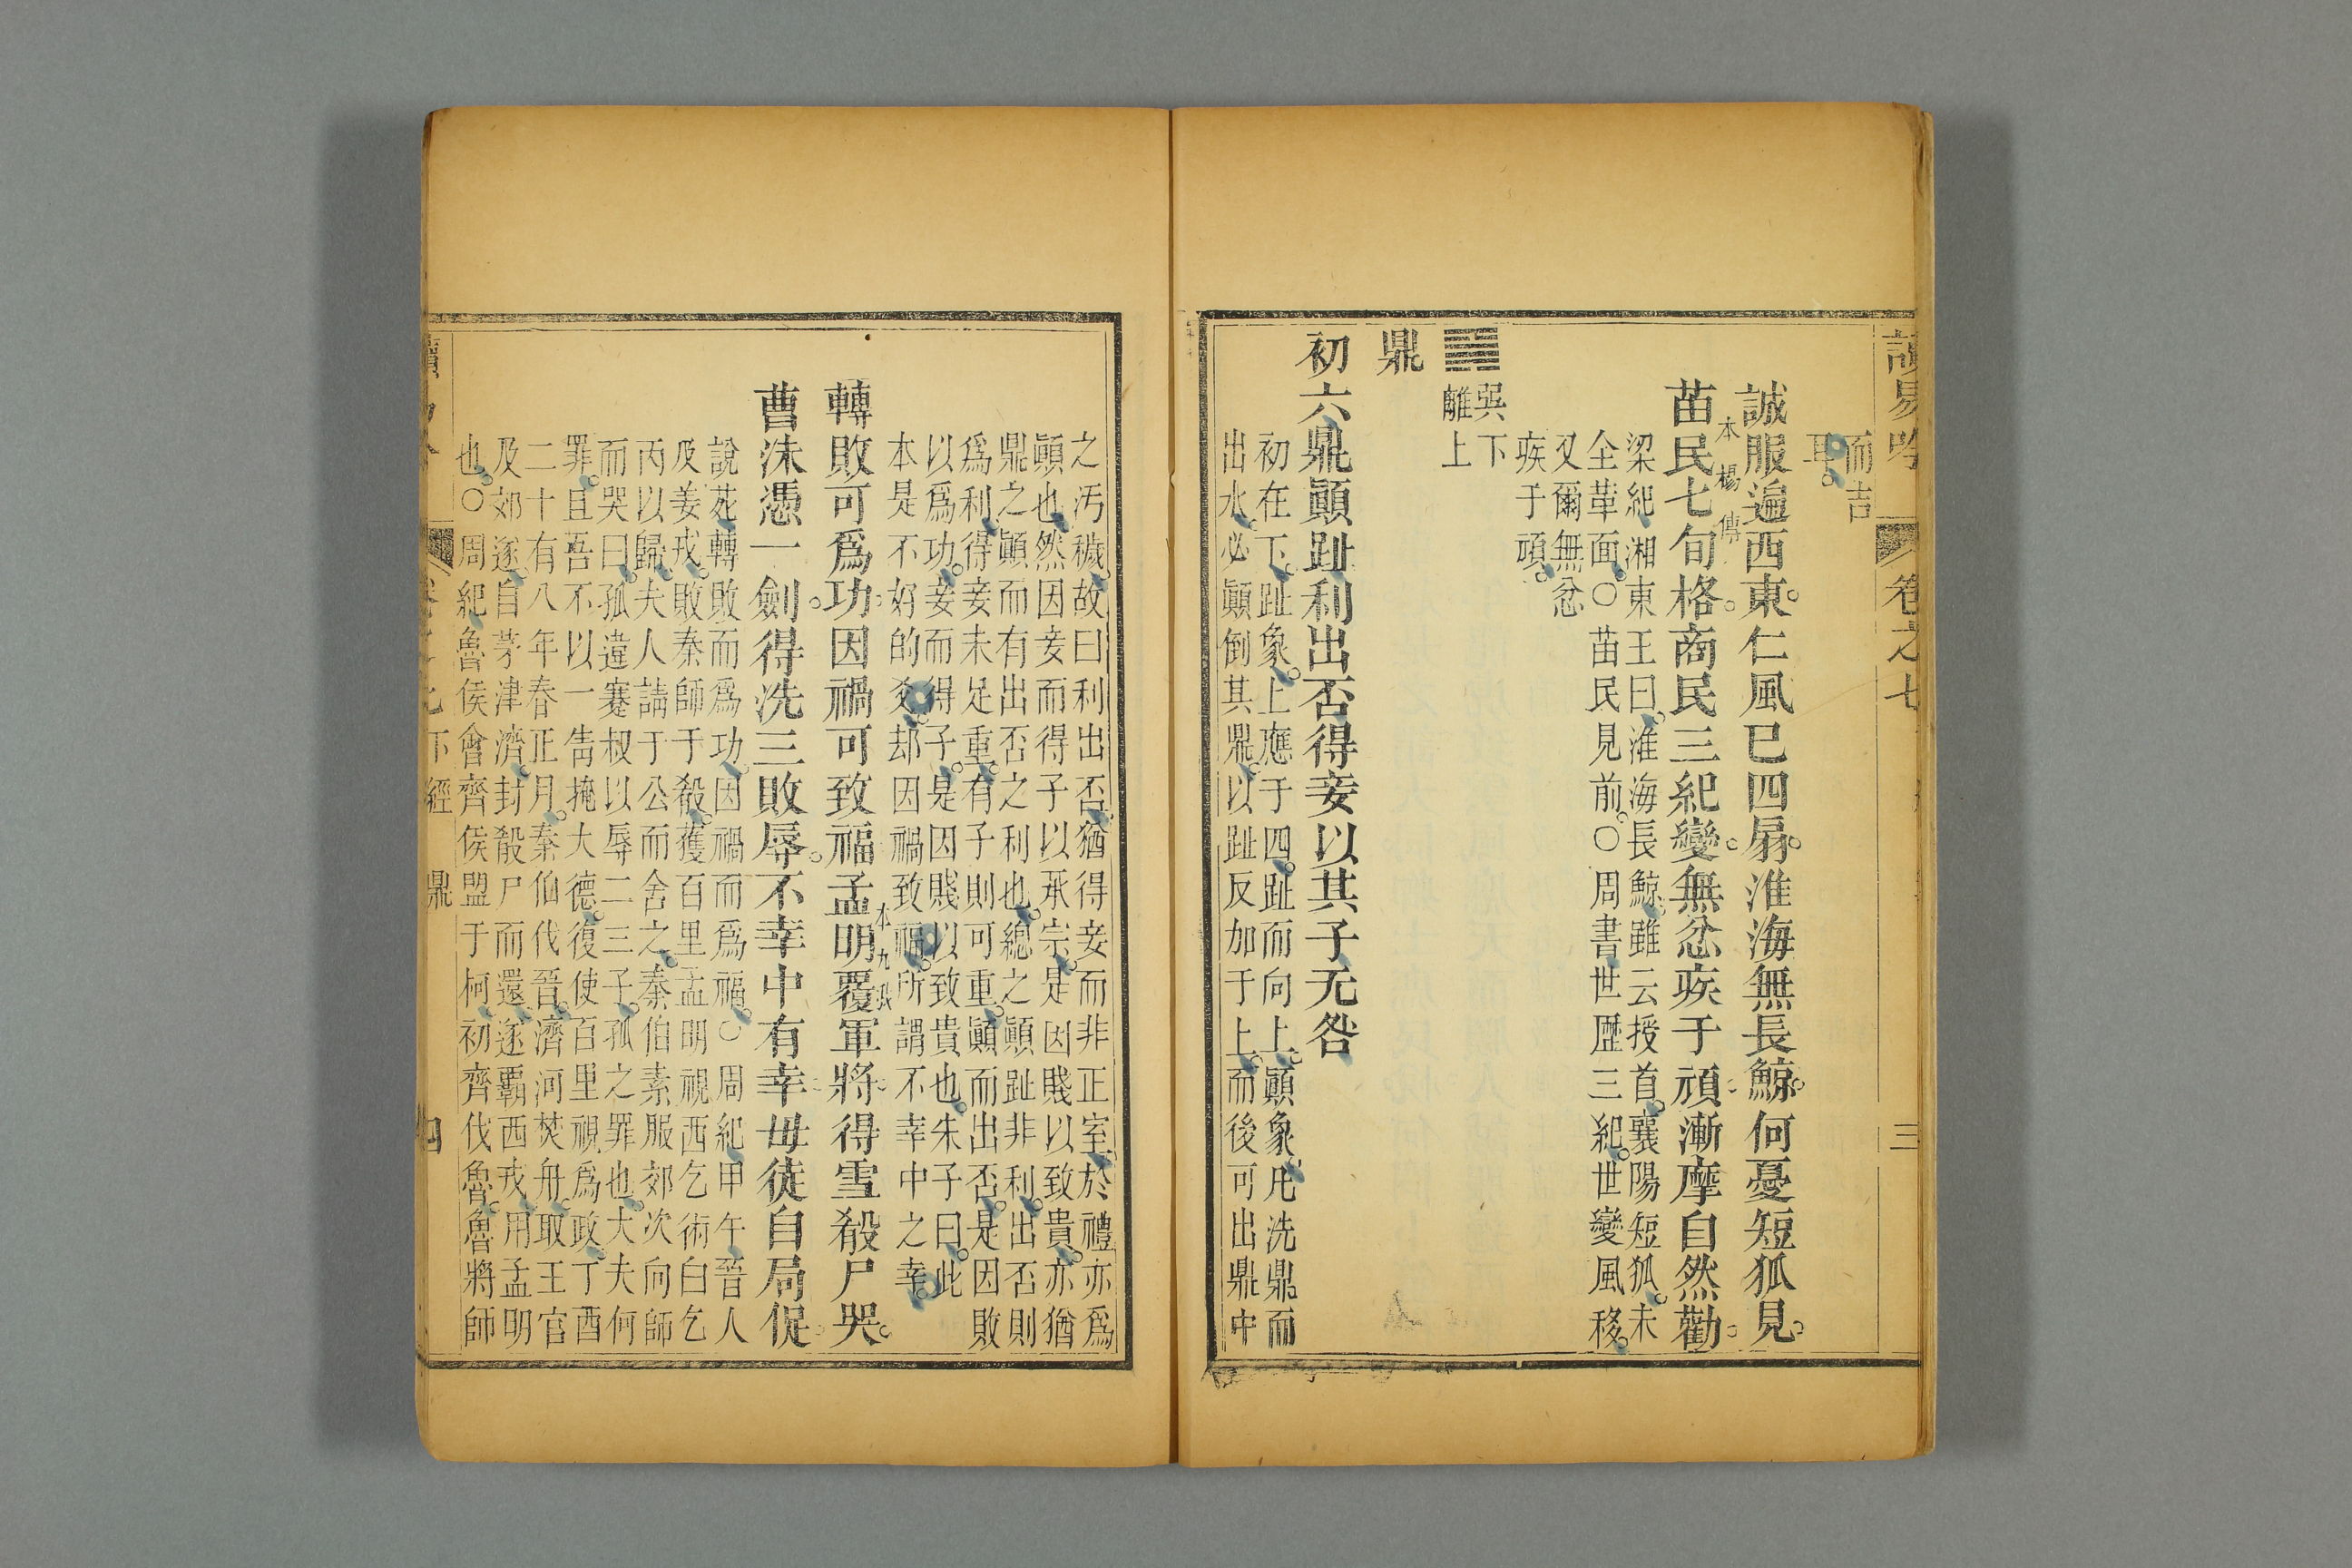 讀易吟
卷之七
三
而吉
耳
誠服遍西東仁風已四扇淮海無長鯨何憂短狐見
本楊傳
苗民七旬格商民三紀變無忿疾于頑漸摩自然勸
梁紀湘東王曰淮海長鯨雖云授首襄陽短狐未
全革面○苗民見前○周書世歷三紀世變風移
又爾無忿
疾于頑
巽下
離上
鼎
初六鼎顚趾利出否得妾以其子无咎
初在下趾象上應于四趾而向上顚象凡洗鼎而
出水必顚倒其鼎以趾反加于上而後可出鼎中
之汚穢故曰利出否猶得妾而非正室於禮亦爲
顚也然因妾而得子以承宗是因賤以致貴亦猶
鼎之顚而有出否之利也總之顚趾非利出否則
爲利得妾未足重有子則可重顚而出否是因敗
以爲功妾而得子是因賤以致貴也朱子曰此
本是不好的爻却因禍致福所謂不幸中之幸
轉敗可爲功因禍可致福孟明覆軍將得雪殽尸哭
本九我
曹沫憑一劍得洗三敗辱不幸中有幸毋徒自局促
說苑轉敗而爲功因禍而爲福○周紀甲午晉人
及姜戎敗秦師于殽獲百里孟明視西乞術白乞
丙以歸夫人請于公而舍之秦伯素服郊次向師
而哭曰孤違蹇叔以辱二三子孤之罪也大夫何
罪且吾不以一眚掩大德復使百里視爲政丁酉
二十有八年春正月秦伯伐晉濟河焚舟取王官
及郊遂自茅津濟封殽尸而還遂霸西戎用孟明
也○周紀魯侯會齊侯盟于柯初齊伐魯魯將師
下經
鼎
四